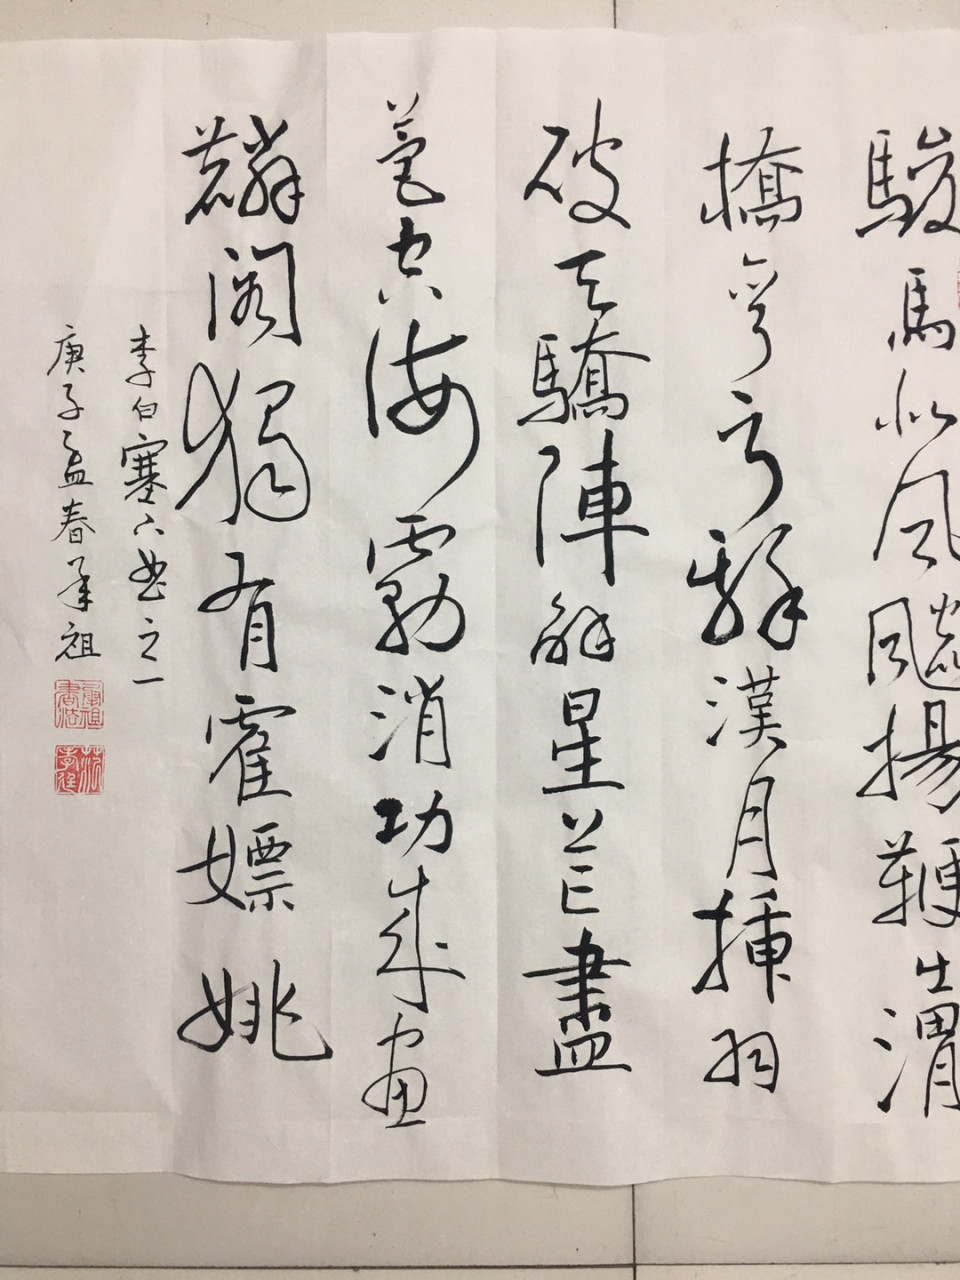 駿馬似風飇揚鞭出渭
橋彎弓辭漢月揷羽
破天驕陣解星芒盡
營空海霧消功成畫
麟閣獨有霍嫖姚
李白塞下曲之一
庚子孟春承祖